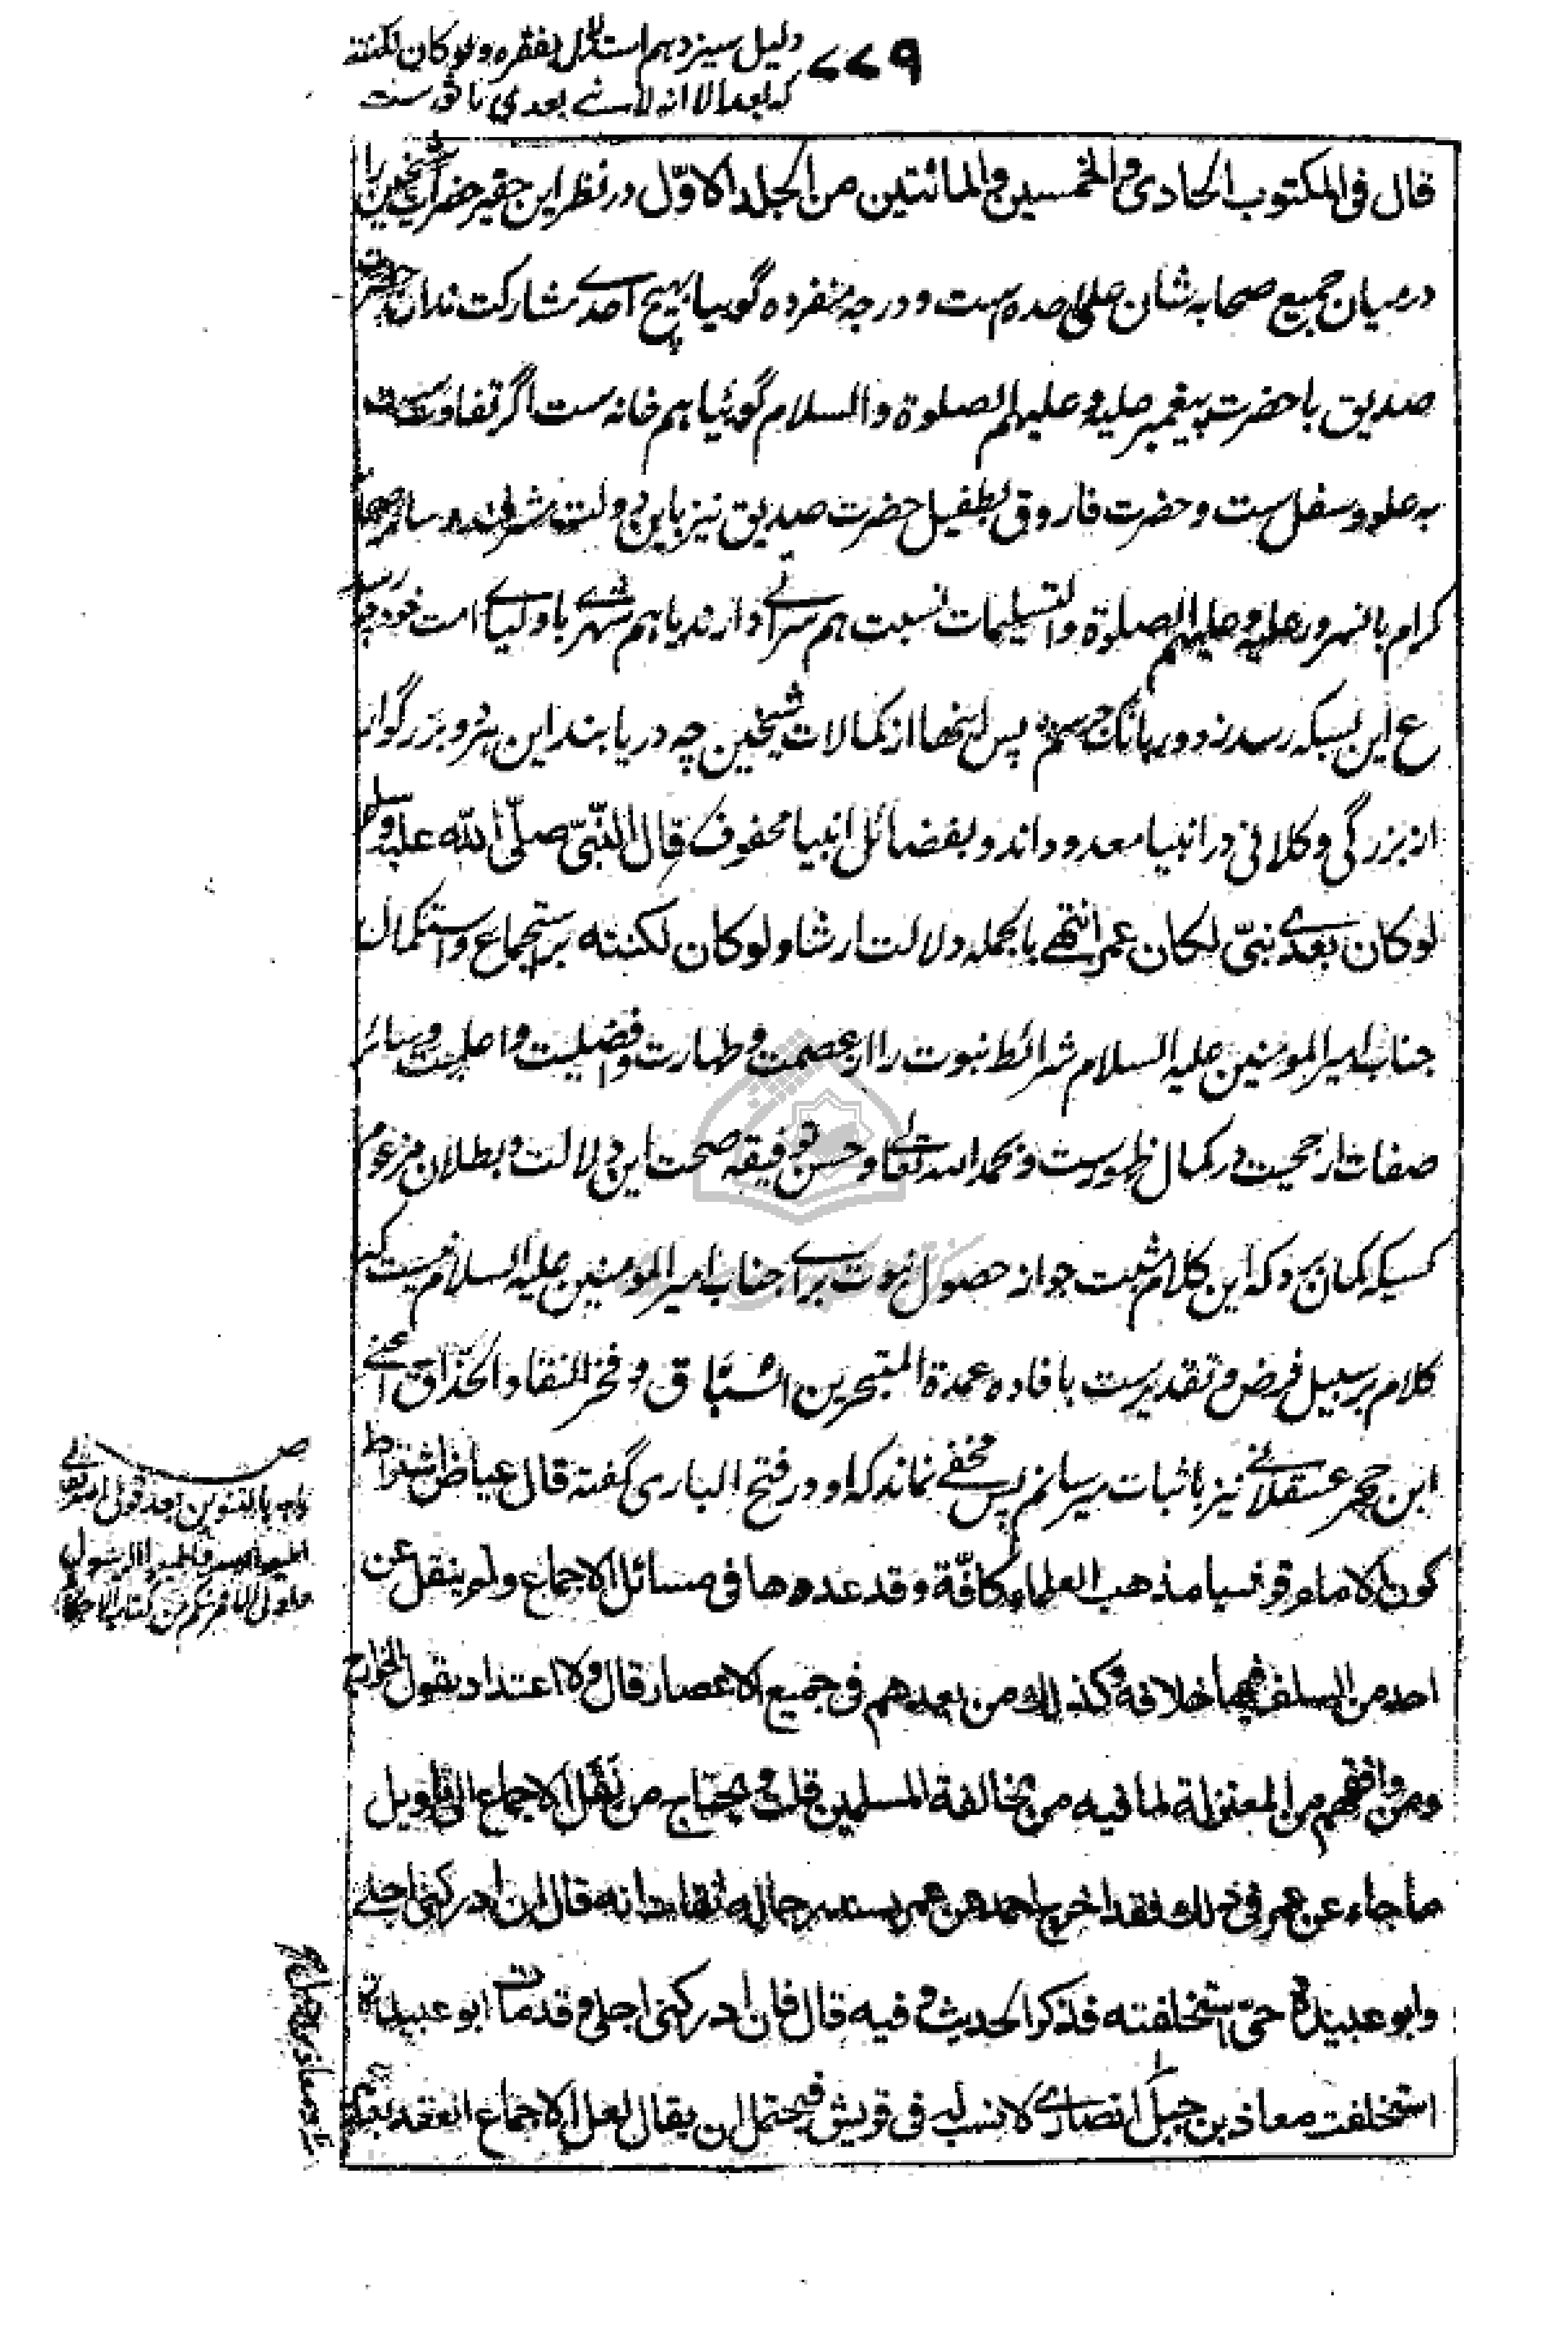 دلیل سیزدهم استدلال بفقره ولو کان لکنته
۷۷۹
که بعد الا انه لا نبی بعدی ماثورست
قال فی المکتوب الحادی و الخمسین و المائتین من الجلد الاوّل در نظر این حقیر حضرات شیخین را
در میان جمیع صحابه شان علی‌حده ست و درجه منفرده گوییا بهیچ احدی مشارکت ندارند حضرت
صدیق با حضرت پیغمبر علیه و علیهم الصلوة و السلام گوئیا هم خانه ست اگر تفاوت ست
به علو و سفل ست و حضرت فاروق بطفیل حضرت صدیق نیز باین دولت مشرفند و سائر صحابه
کرام بآنسرور علیه و علیهم الصلوة و التسلیمات نسبت هم سرائی دارند یا هم شهری باولیای امت خود چه رسد
ع این بسکه رسد ز دور بانگ جرسم پس اینها از کمالات شیخین چه دریابند این هر دو بزرگوار
از بزرگی و کلانی در انبیا معدود اند و بفضائل انبیا محفوف قال النّبیّ صلّی اللّه علیه و سلم
لو کان بعدی نبیّ لکان عمر انتهی بالجمله دلالت ارشاد لو کان لکنته بر استجماع و استکمال
جناب امیر المومنین علیه السلام شرائط نبوت را از عصمت و طهارت و افضلیت و اعلمیت و سائر
صفات ارجحیت در کمال ظهورست و بحمد اللّه تعالی و حسن توفیقه صحت این دلالت و بطلان مزعوم
کسیکه گمان برد که این کلام مثبت جواز حصول نبوت برای جناب امیر المومنین علیه السلام نیست که
کلام بر سبیل فرض و تقدیرست بافاده عمدة المتبحرین السّبّاق و فخر النقاد الحذاق اعنی
ابن حجر عسقلانی نیز باثبات میرسانم پس مخفی نماند که او در فتح الباری گفته قال عیاض اشتراط
کون الامام قرشیا مذهب العلماء کافّة و قد عدوها فی مسائل الاجماع و لم ینقل عن
احد من السلف فیها خلاف و کذلك من بعدهم فی جمیع الاعصار قال و لا اعتداد بقول الخوارج
و من وافقهم من المعتزلة لما فیه من مخالفة المسلمین قلت و یحتاج من نقل الاجماع الی تاویل
ما جاء عن عمر فی ذلك فقد اخرج احمد عن عمر بسند رجاله ثقات انه قال ان ادرکنی اجلی
و ابو عبیدة حیّ استخلفته فذکر الحدیث و فیه قال فان ادرکنی اجلی و قد مات ابو عبیدة
استخلفت معاذ بن جبل انصاری لا نسب له فی قریش فیحتمل ان یقال لعل الاجماع انعقد بعد